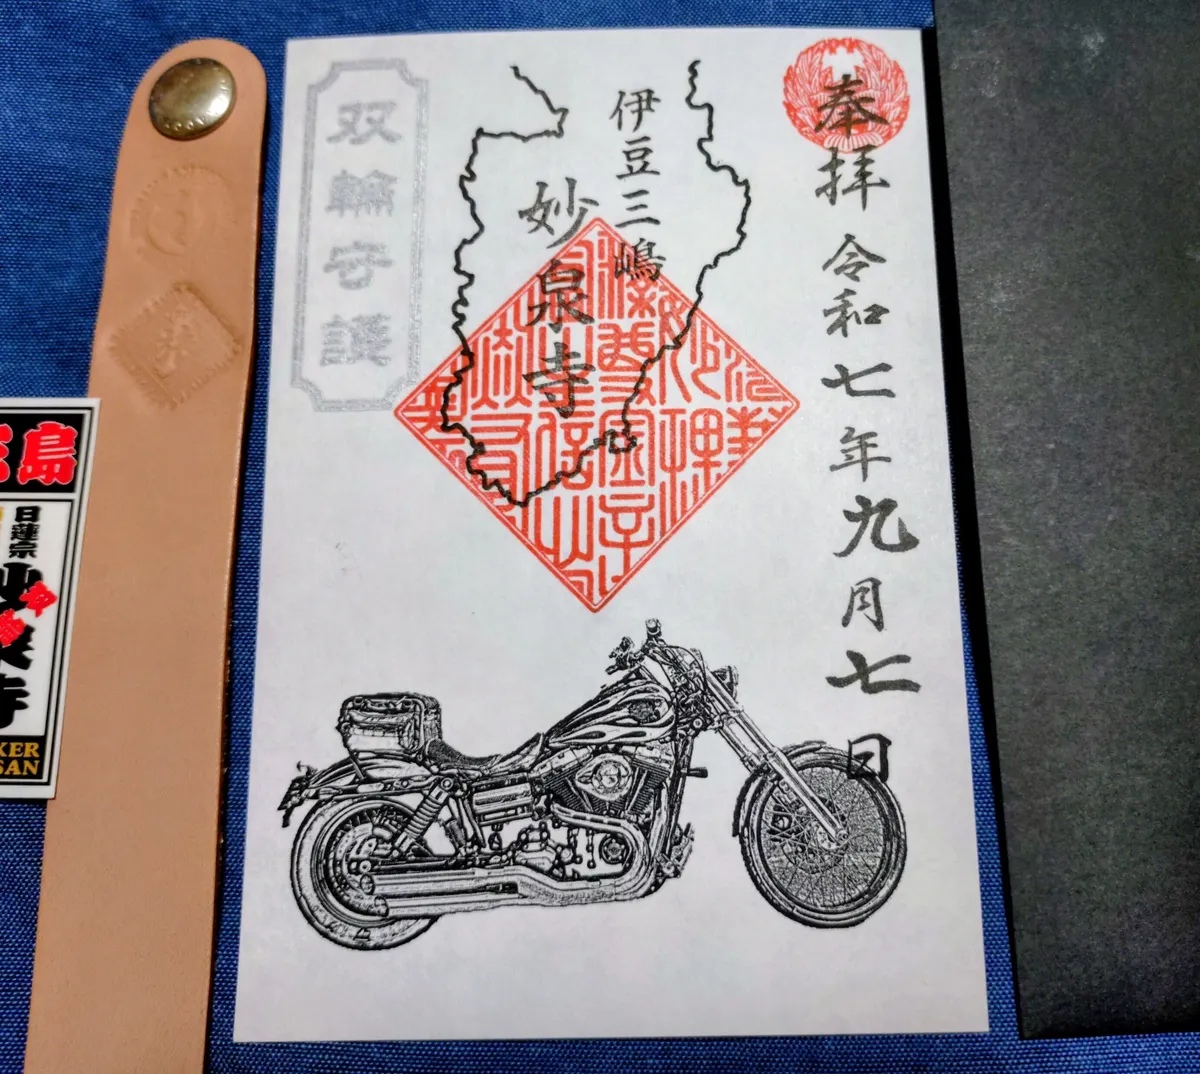 奉拝 令和七年九月七日
伊豆三嶋
妙泉寺
双輪守護
島
日蓮宗
寺
KER
SAN